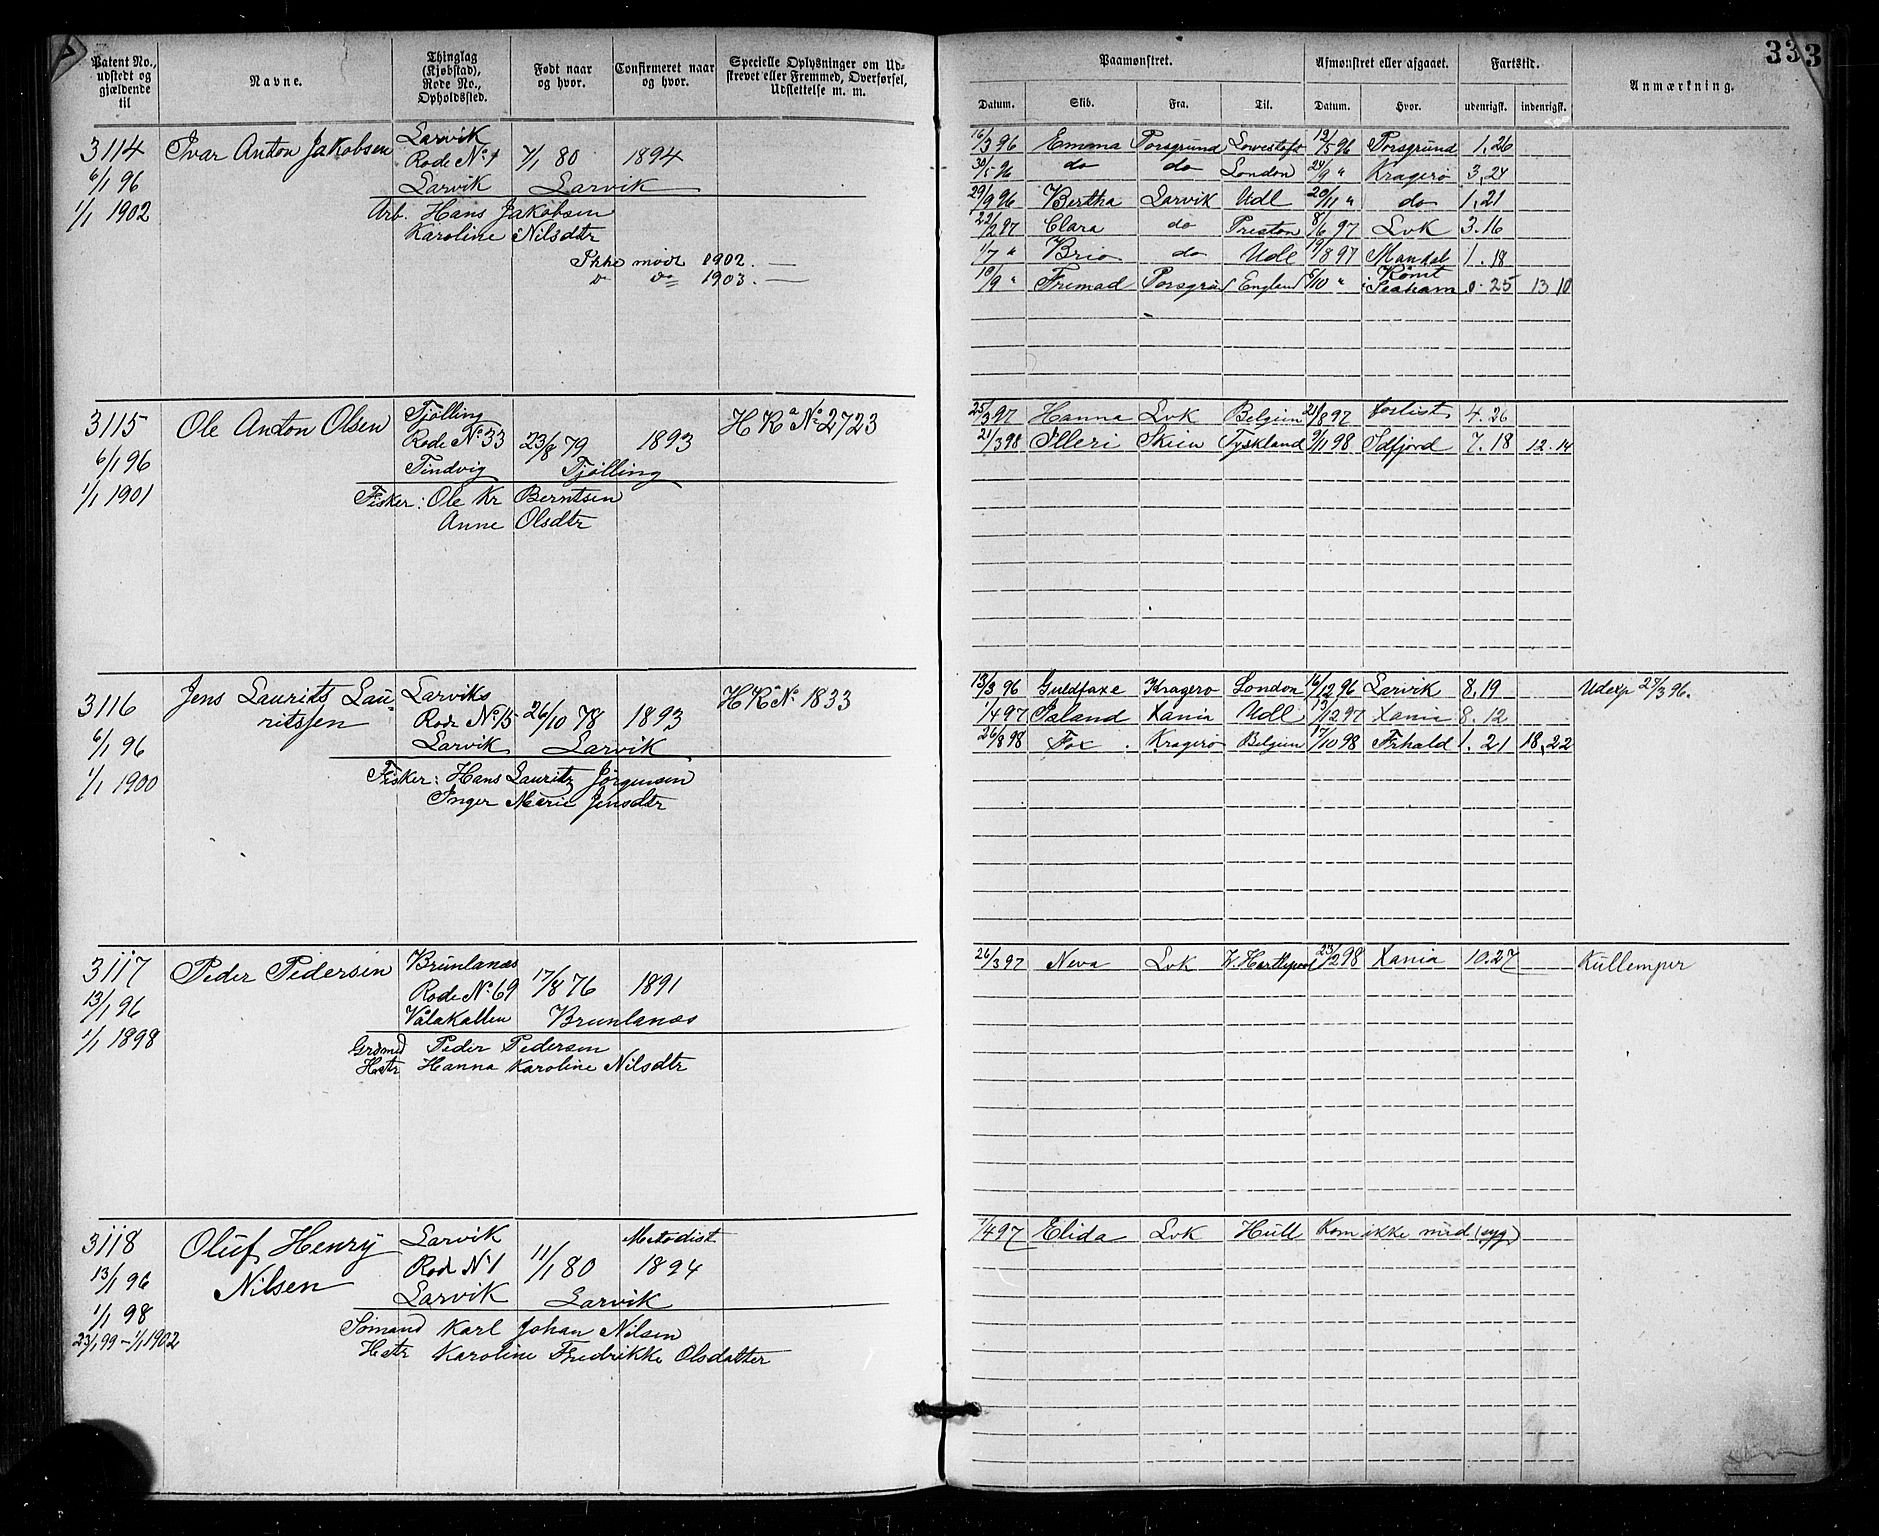 Patent No., udstedt og gjældende til
Navne.
Thinglag (Kjøbstad), Rode No., Opholdssted.
Født naar og hvor.
Confirmeret naar og hvor.
Specielle Oplysninger om Udskrevet eller Fremmed, Overførsel, Udslettelse m. m.
3114 Ivar Anton Jakobsen Larvik
Rode No. 1 7/1 80 1894
6/1 96 Larvik Larvik
1/1 1902 Arb. Hans Jakobsen
Karoline Nilsdtr
Ikke mødt 1902. —
do 1903. —
3115 Ole Anton Olsen Tjølling H Ra No 2723
Rode No 33 23/8 79 1893
6/1 96 Tindvig Tjølling
1/1 1901 Fisker: Ole Kr Berntsen
Anne Olsdtr
3116 Jens Laurits Lau- Larviks H Ra No. 1833
ritssen Rode No 15 26/10 78 1893
6/1 96 Larvik Larvik
1/1 1900 Fisker: Hans Lauritz Jørgensen
Inger Marie Jensdtr
3117 Peder Pedersen Brunlanæs
Rode No. 69 17/8 76 1891
13/1 96 Vålakallen Brunlanæs
1/1 1898 Grdmd Peder Pedersen
Hstr Hanna Karoline Nilsdtr
3118 Oluf Henry Larvik Metodist
Nilsen Rod No 1 11/1 80 1894
13/1 96 Larvik Larvik
1/1 98 Sømand Karl Johan Nilsen
23/1 99 - 1/1 1902 Hstr Karoline Fredrikke Olsdatter
333
Paamønstret. Afmønstret eller afgaaet. Fartstid. Anmærkning.
Datum. Skib. Fra. Til. Datum. Hvor. udenrigsk. indenrigsk.
16/3 96 Emma Porsgrund Lowestoft 12/5 96 Porsgrund 1.26
30/5 96 do do London 24/9 " Kragerø 3.24
29/9 96 Bertha Larvik Udl 20/11 " do 1.21
22/2 97 Clara do Preston 8/6 97 Lvk 3.16
1/7 " Brio do Udl 19/8 97 Mandal 1.18
10/9 " Fremad Porsgrund England 5/10 " Rømt i Seaham 0.25 13 10
25/3 97 Hanna Lvk Belgien 21/8 97 forlist. 4.26
21/3 98 Illeri Skien Tyskland 9/11 98 Idfjord 7.18 12.14
13/3 96 Guldfaxe Kragerø London 16/12 96 Larvik 8.19 Udexp 27/3 96.
1/4 97 Island Xania Udl 13/12 97 Xania 8.12
26/8 98 Fox Kragerø Belgien 17/10 98 Frhald 1.21 18.22
26/3 97 Neva Lvk W. Hartlepool 23/2 98 Xania 10.27 Kullemper
1/4 97 Elida Lvk Hull Kom ikke med (syg)